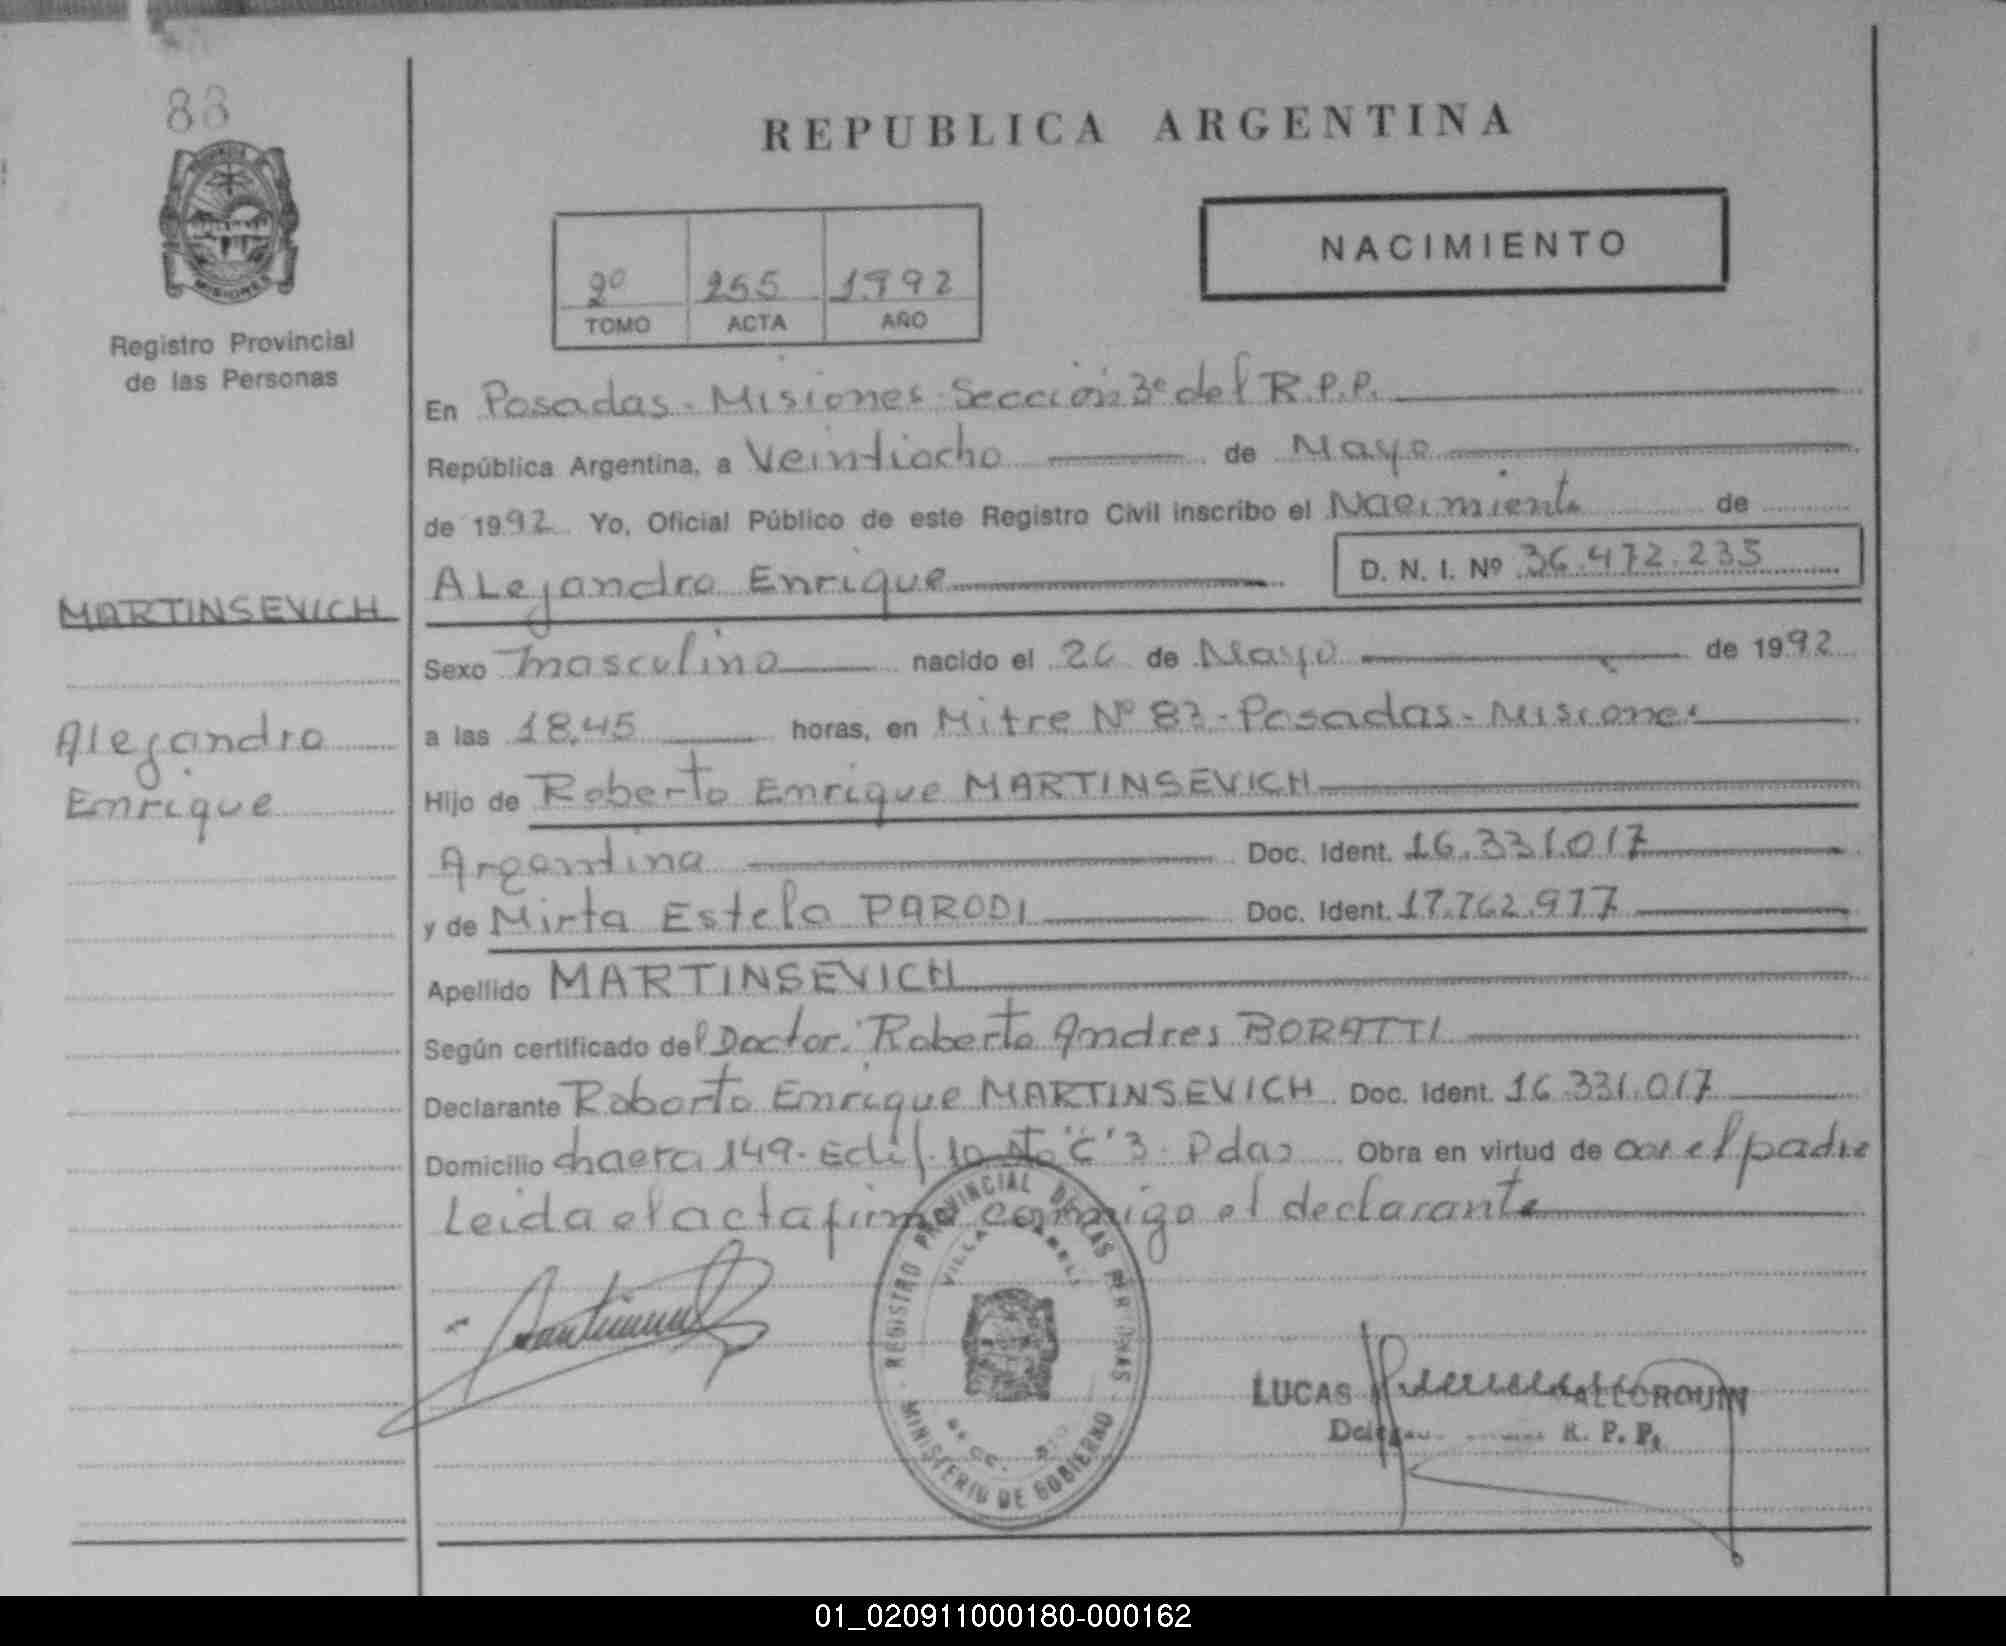 88
REPUBLICA ARGENTINA
NACIMIENTO
2º 255 1992
TOMO ACTA AÑO
MISIONES
Registro Provincial
de las Personas
MARTINSEVICH
Alejandro
Enrique
En Posadas - Misiones - Sección 3º del R.P.P.
República Argentina, a Veintiocho de Mayo
de 1992 Yo, Oficial Público de este Registro Civil inscribo el Nacimiento de
Alejandro Enrique D. N. I. Nº 36.472.235
Sexo masculino nacido el 26 de Mayo de 1992
a las 18,45 horas, en Mitre Nº 83 - Posadas - Misiones
Hijo de Roberto Enrique MARTINSEVICH
Argentina Doc. Ident. 16.331.017
y de Mirta Estela PARODI Doc. Ident. 17.762.977
Apellido MARTINSEVICH
Según certificado del Doctor: Roberto Andres BORATTI
Declarante Roberto Enrique MARTINSEVICH Doc. Ident. 16.331.017
Domicilio chacra 149 - Edif. 10 "C" 3 - Pdas Obra en virtud de ser el padre
Leida el acta firma conmigo el declarante
REGISTRO PROVINCIAL DE LAS PERSONAS
VILLA
MINISTERIO DE GOBIERNO
LUCAS
R. P. P.
01_020911000180-000162